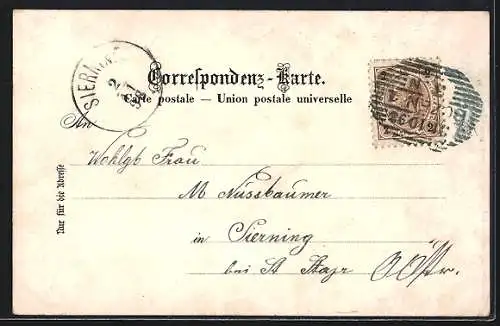 SIERNING
2
Correspondenz-Karte.
Carte postale — Union postale universelle
An
Wohlgb Frau
M Nussbaumer
in Sierning
bei St
Nur für die Adresse
2
2